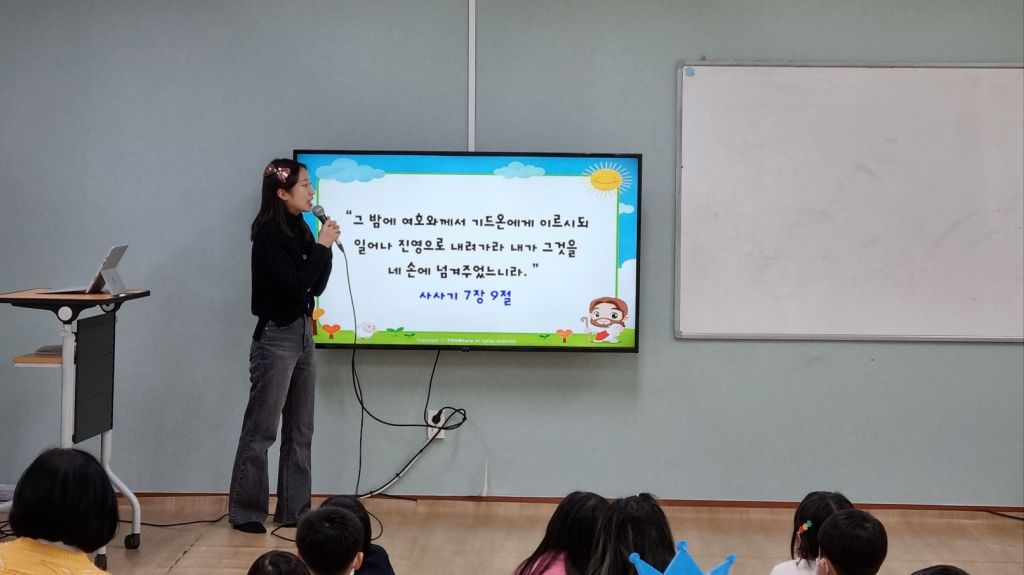 “그 밤에 여호와께서 기드온에게 이르시되
일어나 진영으로 내려가라 내가 그것을
네 손에 넘겨주었느니라.”
사사기 7장 9절
Copyright ⓒ YOUStory all rights reserved